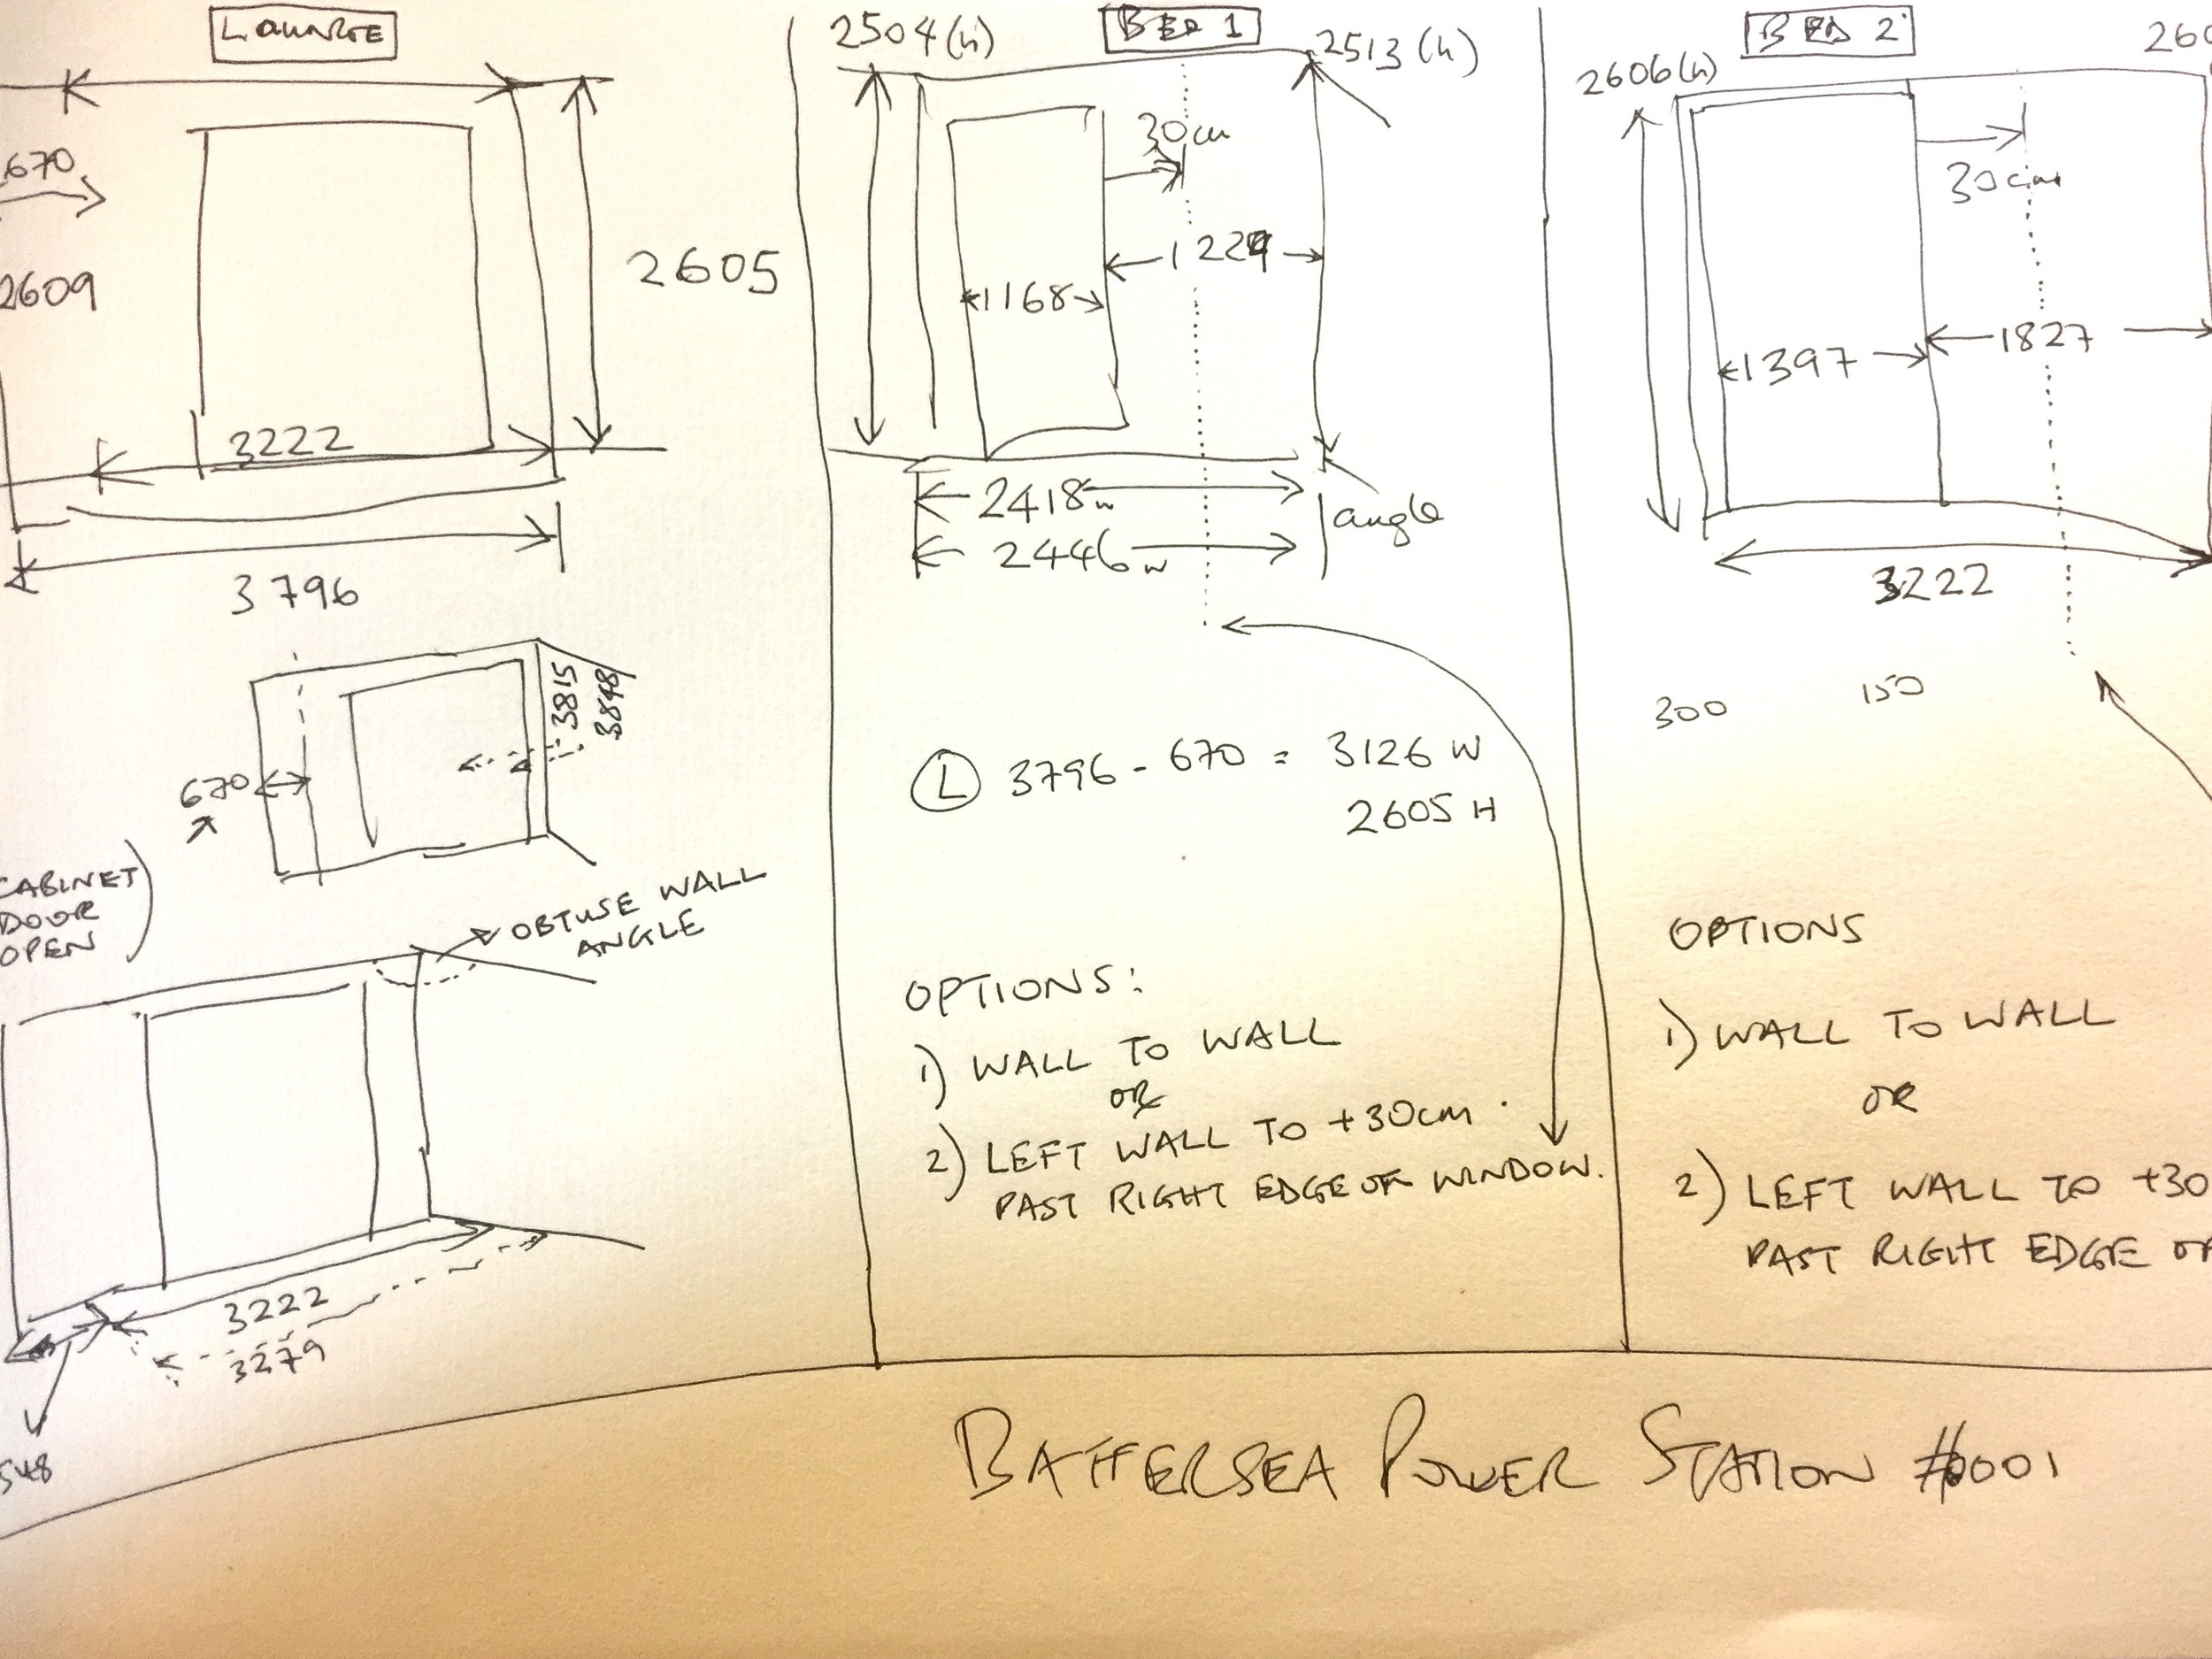 LOUNGE
670
2609
2605
3222
3796
670
3815
3848
CABINET
DOOR
OPEN
OBTUSE WALL
ANGLE
3222
3279
548
BED 1
2504 (h)
2513 (h)
30cm
1168
2418w
2446w
angle
L 3796 - 670 = 3126 W
2605 H
OPTIONS:
1) WALL TO WALL
OR
2) LEFT WALL TO +30cm
PAST RIGHT EDGE OF WINDOW.
BED 2
2606(h)
260
30cm
1397
1827
3222
300
150
OPTIONS
1) WALL TO WALL
OR
2) LEFT WALL TO +30
PAST RIGHT EDGE OF
BATTERSEA POWER STATION #001